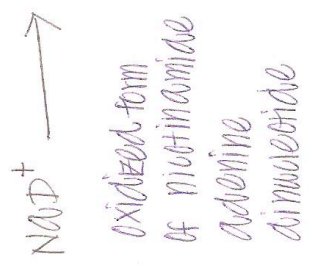 NaD+ →
oxidized form
of nicotinamide
adenine
dinucleotide